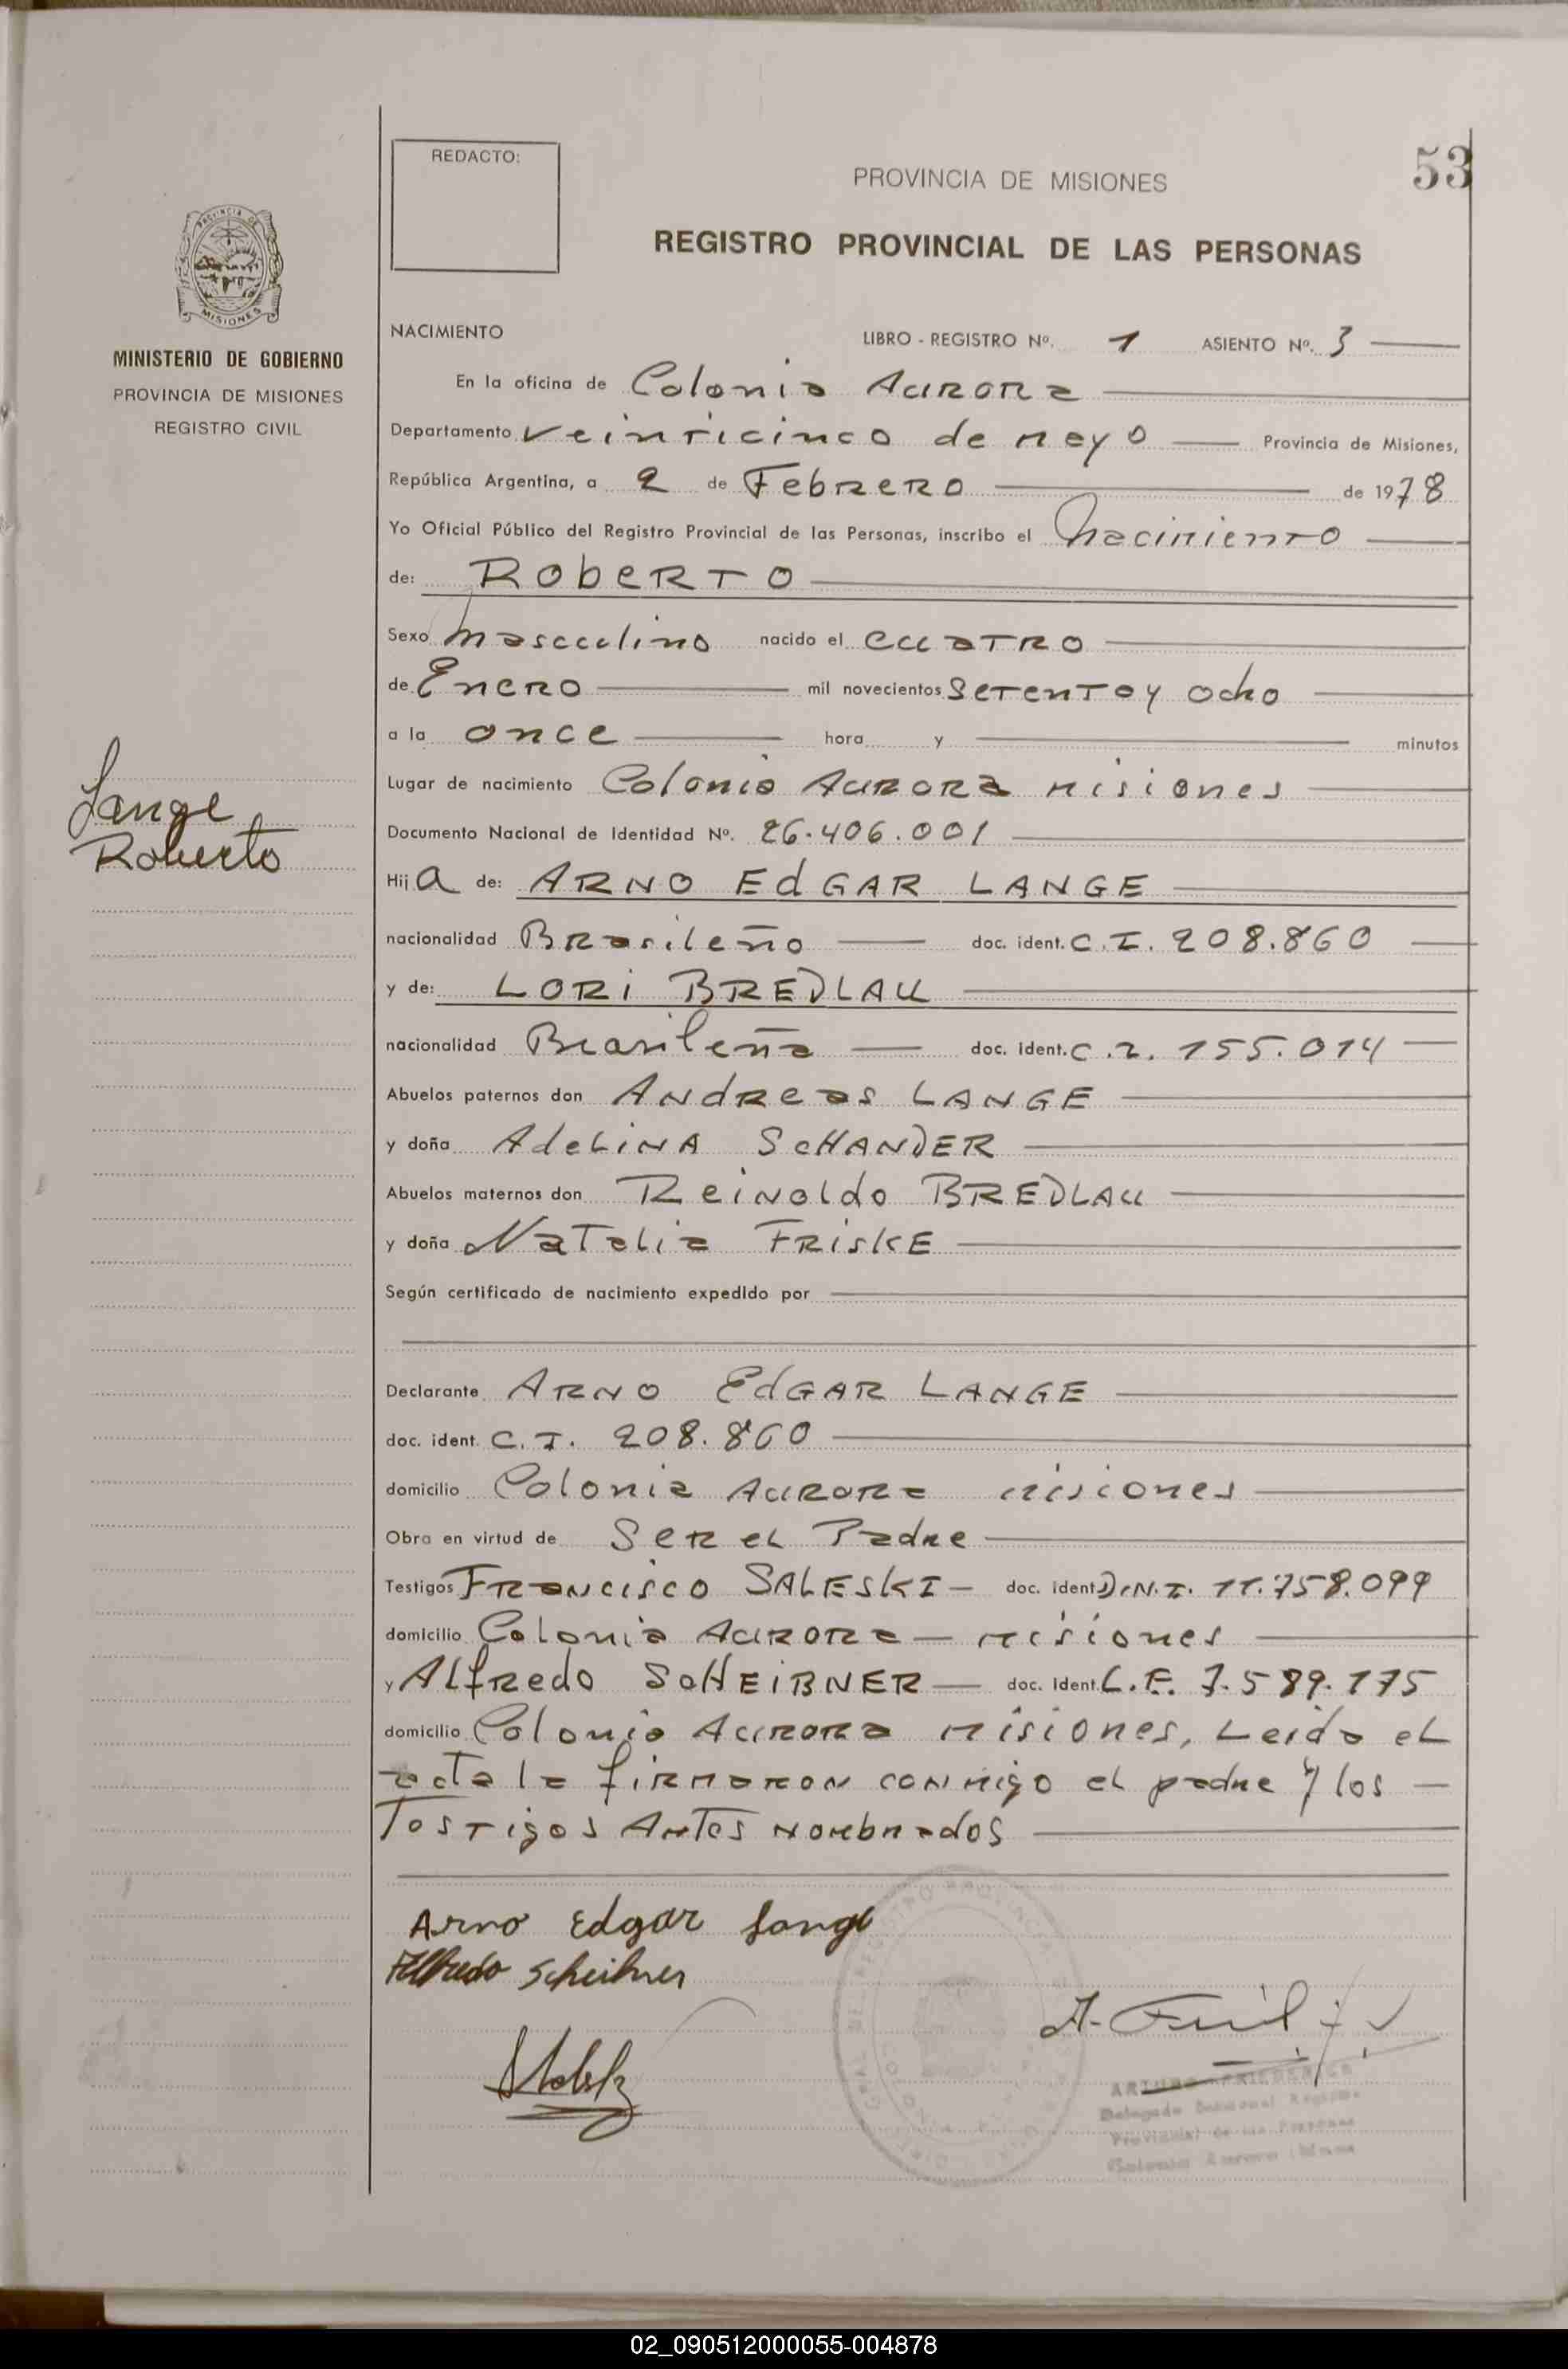 53
REDACTO:
PROVINCIA DE MISIONES
REGISTRO PROVINCIAL DE LAS PERSONAS
PROVINCIA DE
MISIONES
MINISTERIO DE GOBIERNO
PROVINCIA DE MISIONES
REGISTRO CIVIL
Lange
Roberto
NACIMIENTO LIBRO - REGISTRO Nº. 1 ASIENTO Nº. 3
En la oficina de Colonia Aurora
Departamento Veinticinco de Mayo Provincia de Misiones,
República Argentina, a 2 de Febrero de 1978
Yo Oficial Público del Registro Provincial de las Personas, inscribo el Nacimiento
de: ROBERTO
Sexo Masculino nacido el cuatro
de Enero mil novecientos Setenta y ocho
a la once hora y minutos
Lugar de nacimiento Colonia Aurora Misiones
Documento Nacional de Identidad Nº. 26.406.001
Hija de: ARNO EdGAR LANGE
nacionalidad Brasileño doc. ident. C.I. 208.860
y de: LORI BREDLAU
nacionalidad Brasileña doc. ident. C.I. 155.014
Abuelos paternos don ANdReas LANGE
y doña AdeLiNA ScHANDER
Abuelos maternos don Reinoldo BREDLAU
y doña Natalia FRiskE
Según certificado de nacimiento expedido por
Declarante ARNO EdGAR LANGE
doc. ident. C.I. 208.860
domicilio Colonia Aurora Misiones
Obra en virtud de Ser el Padre
Testigos FRANcisco SALESKI — doc. ident D.N.I. 11.758.099
domicilio Colonia Aurora — Misiones
y ALfredo ScHEiBNER — doc. ident. L.E. 7.589.175
domicilio Colonia Aurora Misiones, Leida el
acta la firmaron conmigo el padre y los —
Testigos Antes nombrados
Arno Edgar Lange
Alfredo Scheibner
Delegado Seccional Registro
Provincial de las Personas
Colonia Aurora
02_090512000055-004878